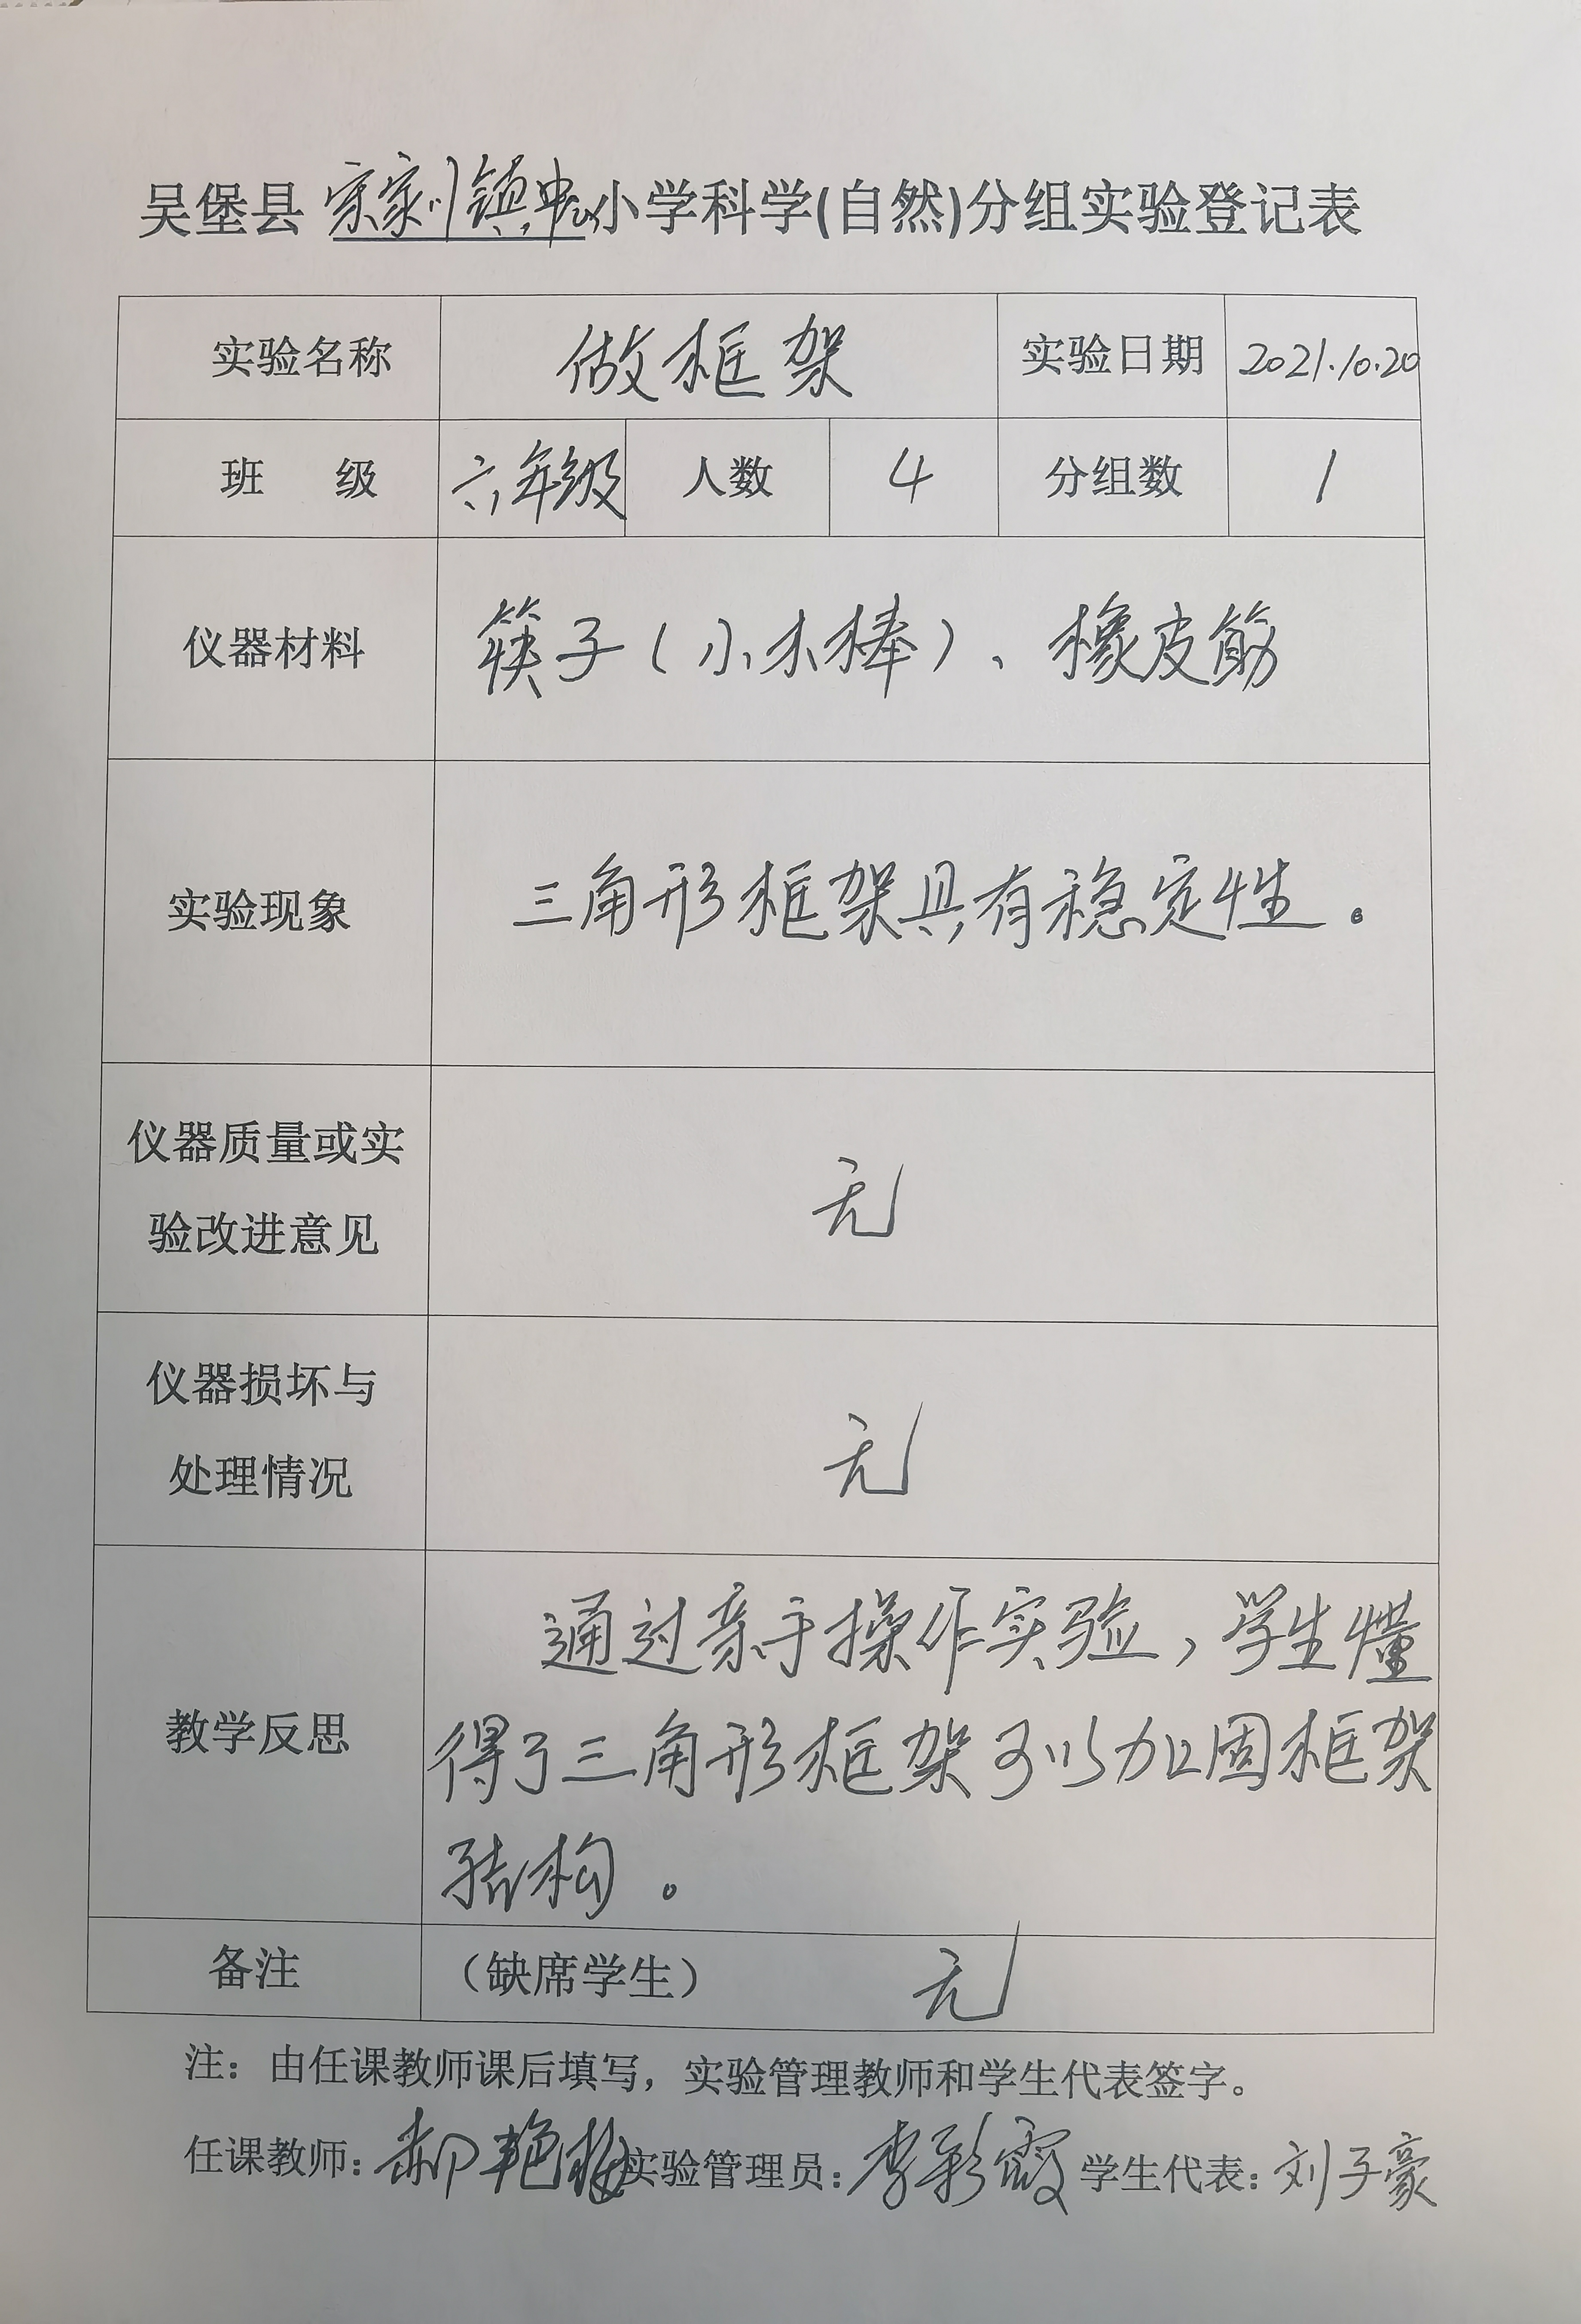 吴堡县宋家川镇中心小学科学(自然)分组实验登记表
实验名称 做框架 实验日期 2021.10.20
班 级 六年级 人数 4 分组数 1
仪器材料 筷子(小木棒)、橡皮筋
实验现象 三角形框架具有稳定性。
仪器质量或实
验改进意见
无
仪器损坏与
处理情况
无
教学反思
通过亲手操作实验,学生懂
得了三角形框架可以加固框架
结构。
备注 (缺席学生) 无
注:由任课教师课后填写,实验管理教师和学生代表签字。
任课教师:郝艳梅 实验管理员:李彩霞 学生代表:刘子豪